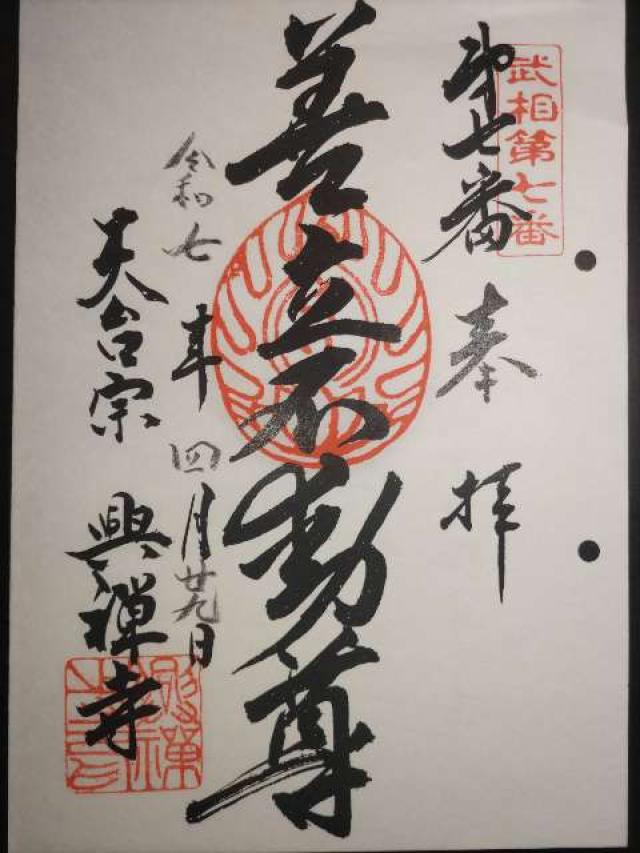 武相第七番
第七番
奉拝
善立不動尊
令和七年四月廿九日
天台宗 興禅寺